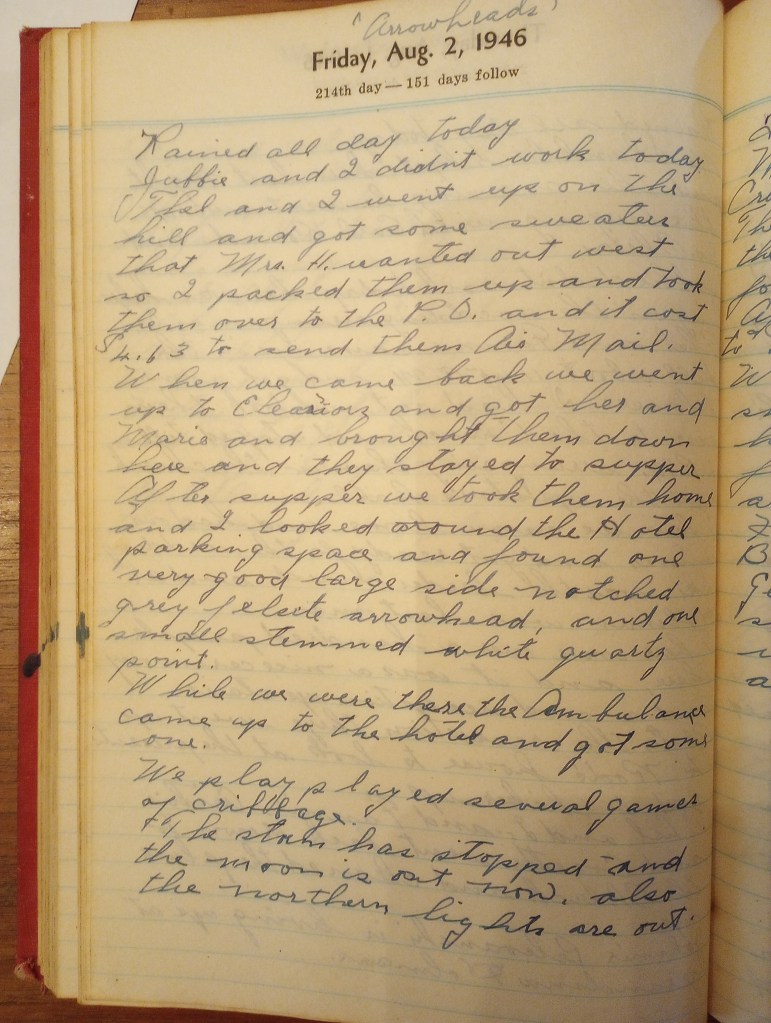 'Arrowheads'
Friday, Aug. 2, 1946
214th day — 151 days follow
Rained all day today
Jubbie and I didn't work today
Thel and I went up on the
hill and got some sweaters
that Mrs. H. wanted out west
so I packed them up and took
them over to the P.O. and it cost
$4.63 to send them Air Mail.
When we came back we went
up to and got her and
Marie and brought them down
here and they stayed to supper
After supper we took them home
and I looked around the Hotel
parking space and found one
very good large side notched
grey felsite arrowhead, and one
small stemmed white quartz
point.
While we were there the Ambulance
came up to the hotel and got some
one.
We play played several games
of cribbage.
The storm has stopped and
the moon is out now, also
the northern lights are out.